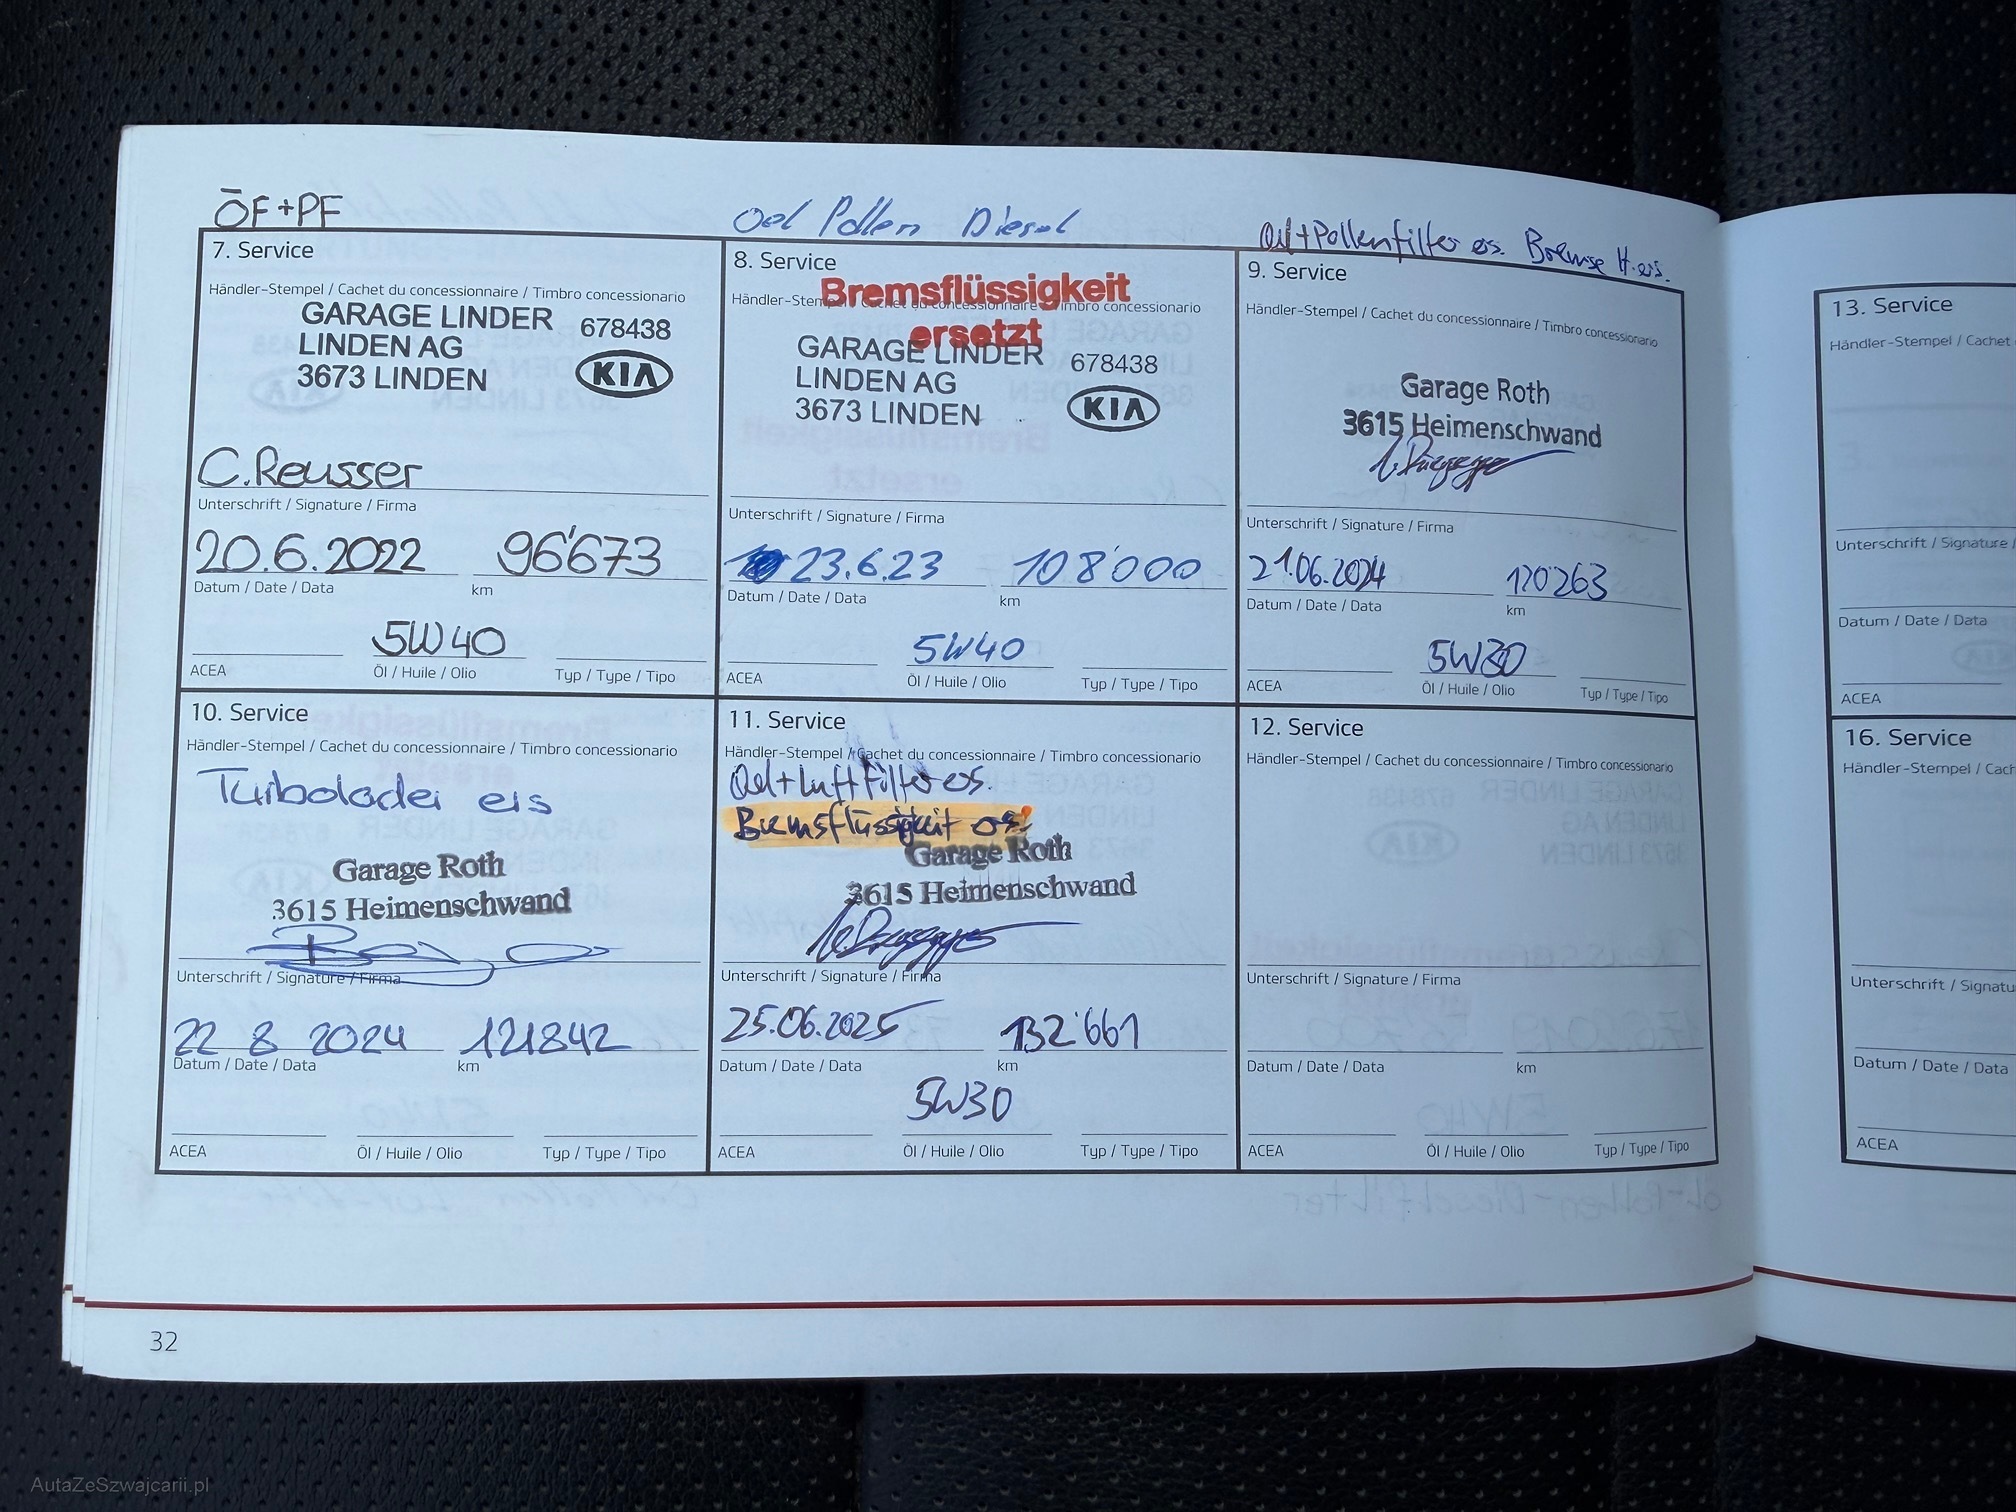 ÖF+PF
7. Service
Händler-Stempel / Cachet du concessionnaire / Timbro concessionario
GARAGE LINDER 678438
LINDEN AG
3673 LINDEN
KIA
C. Reusser
Unterschrift / Signature / Firma
20.6.2022 96'673
Datum / Date / Data km
5W40
ACEA Öl / Huile / Olio Typ / Type / Tipo
Oel Pollen Diesel
8. Service
Bremsflüssigkeit
Händler-Stempel / Cachet du concessionnaire / Timbro concessionario
ersetzt
GARAGE LINDER 678438
LINDEN AG
3673 LINDEN
KIA
Unterschrift / Signature / Firma
23.6.23 108'000
Datum / Date / Data km
5W40
ACEA Öl / Huile / Olio Typ / Type / Tipo
Oel+Pollenfilter ers. Bremse H. ers.
9. Service
Händler-Stempel / Cachet du concessionnaire / Timbro concessionario
Garage Roth
3615 Heimenschwand
Unterschrift / Signature / Firma
21.06.2024 120'263
Datum / Date / Data km
5W30
ACEA Öl / Huile / Olio Typ / Type / Tipo
10. Service
Händler-Stempel / Cachet du concessionnaire / Timbro concessionario
Turbolader ers
Garage Roth
3615 Heimenschwand
Unterschrift / Signature / Firma
22 8 2024 121842
Datum / Date / Data km
ACEA Öl / Huile / Olio Typ / Type / Tipo
11. Service
Händler-Stempel / Cachet du concessionnaire / Timbro concessionario
Oel+Luftfilter ers.
Bremsflüssigkeit ers.
Garage Roth
3615 Heimenschwand
Unterschrift / Signature / Firma
25.06.2025 132'661
Datum / Date / Data km
5W30
ACEA Öl / Huile / Olio Typ / Type / Tipo
12. Service
Händler-Stempel / Cachet du concessionnaire / Timbro concessionario
Unterschrift / Signature / Firma
Datum / Date / Data km
ACEA Öl / Huile / Olio Typ / Type / Tipo
32
13. Service
Händler-Stempel / Cachet
Unterschrift / Signature /
Datum / Date / Data
ACEA
16. Service
Händler-Stempel / Cach
Unterschrift / Signatu
Datum / Date / Data
ACEA
AutaZeSzwajcarii.pl